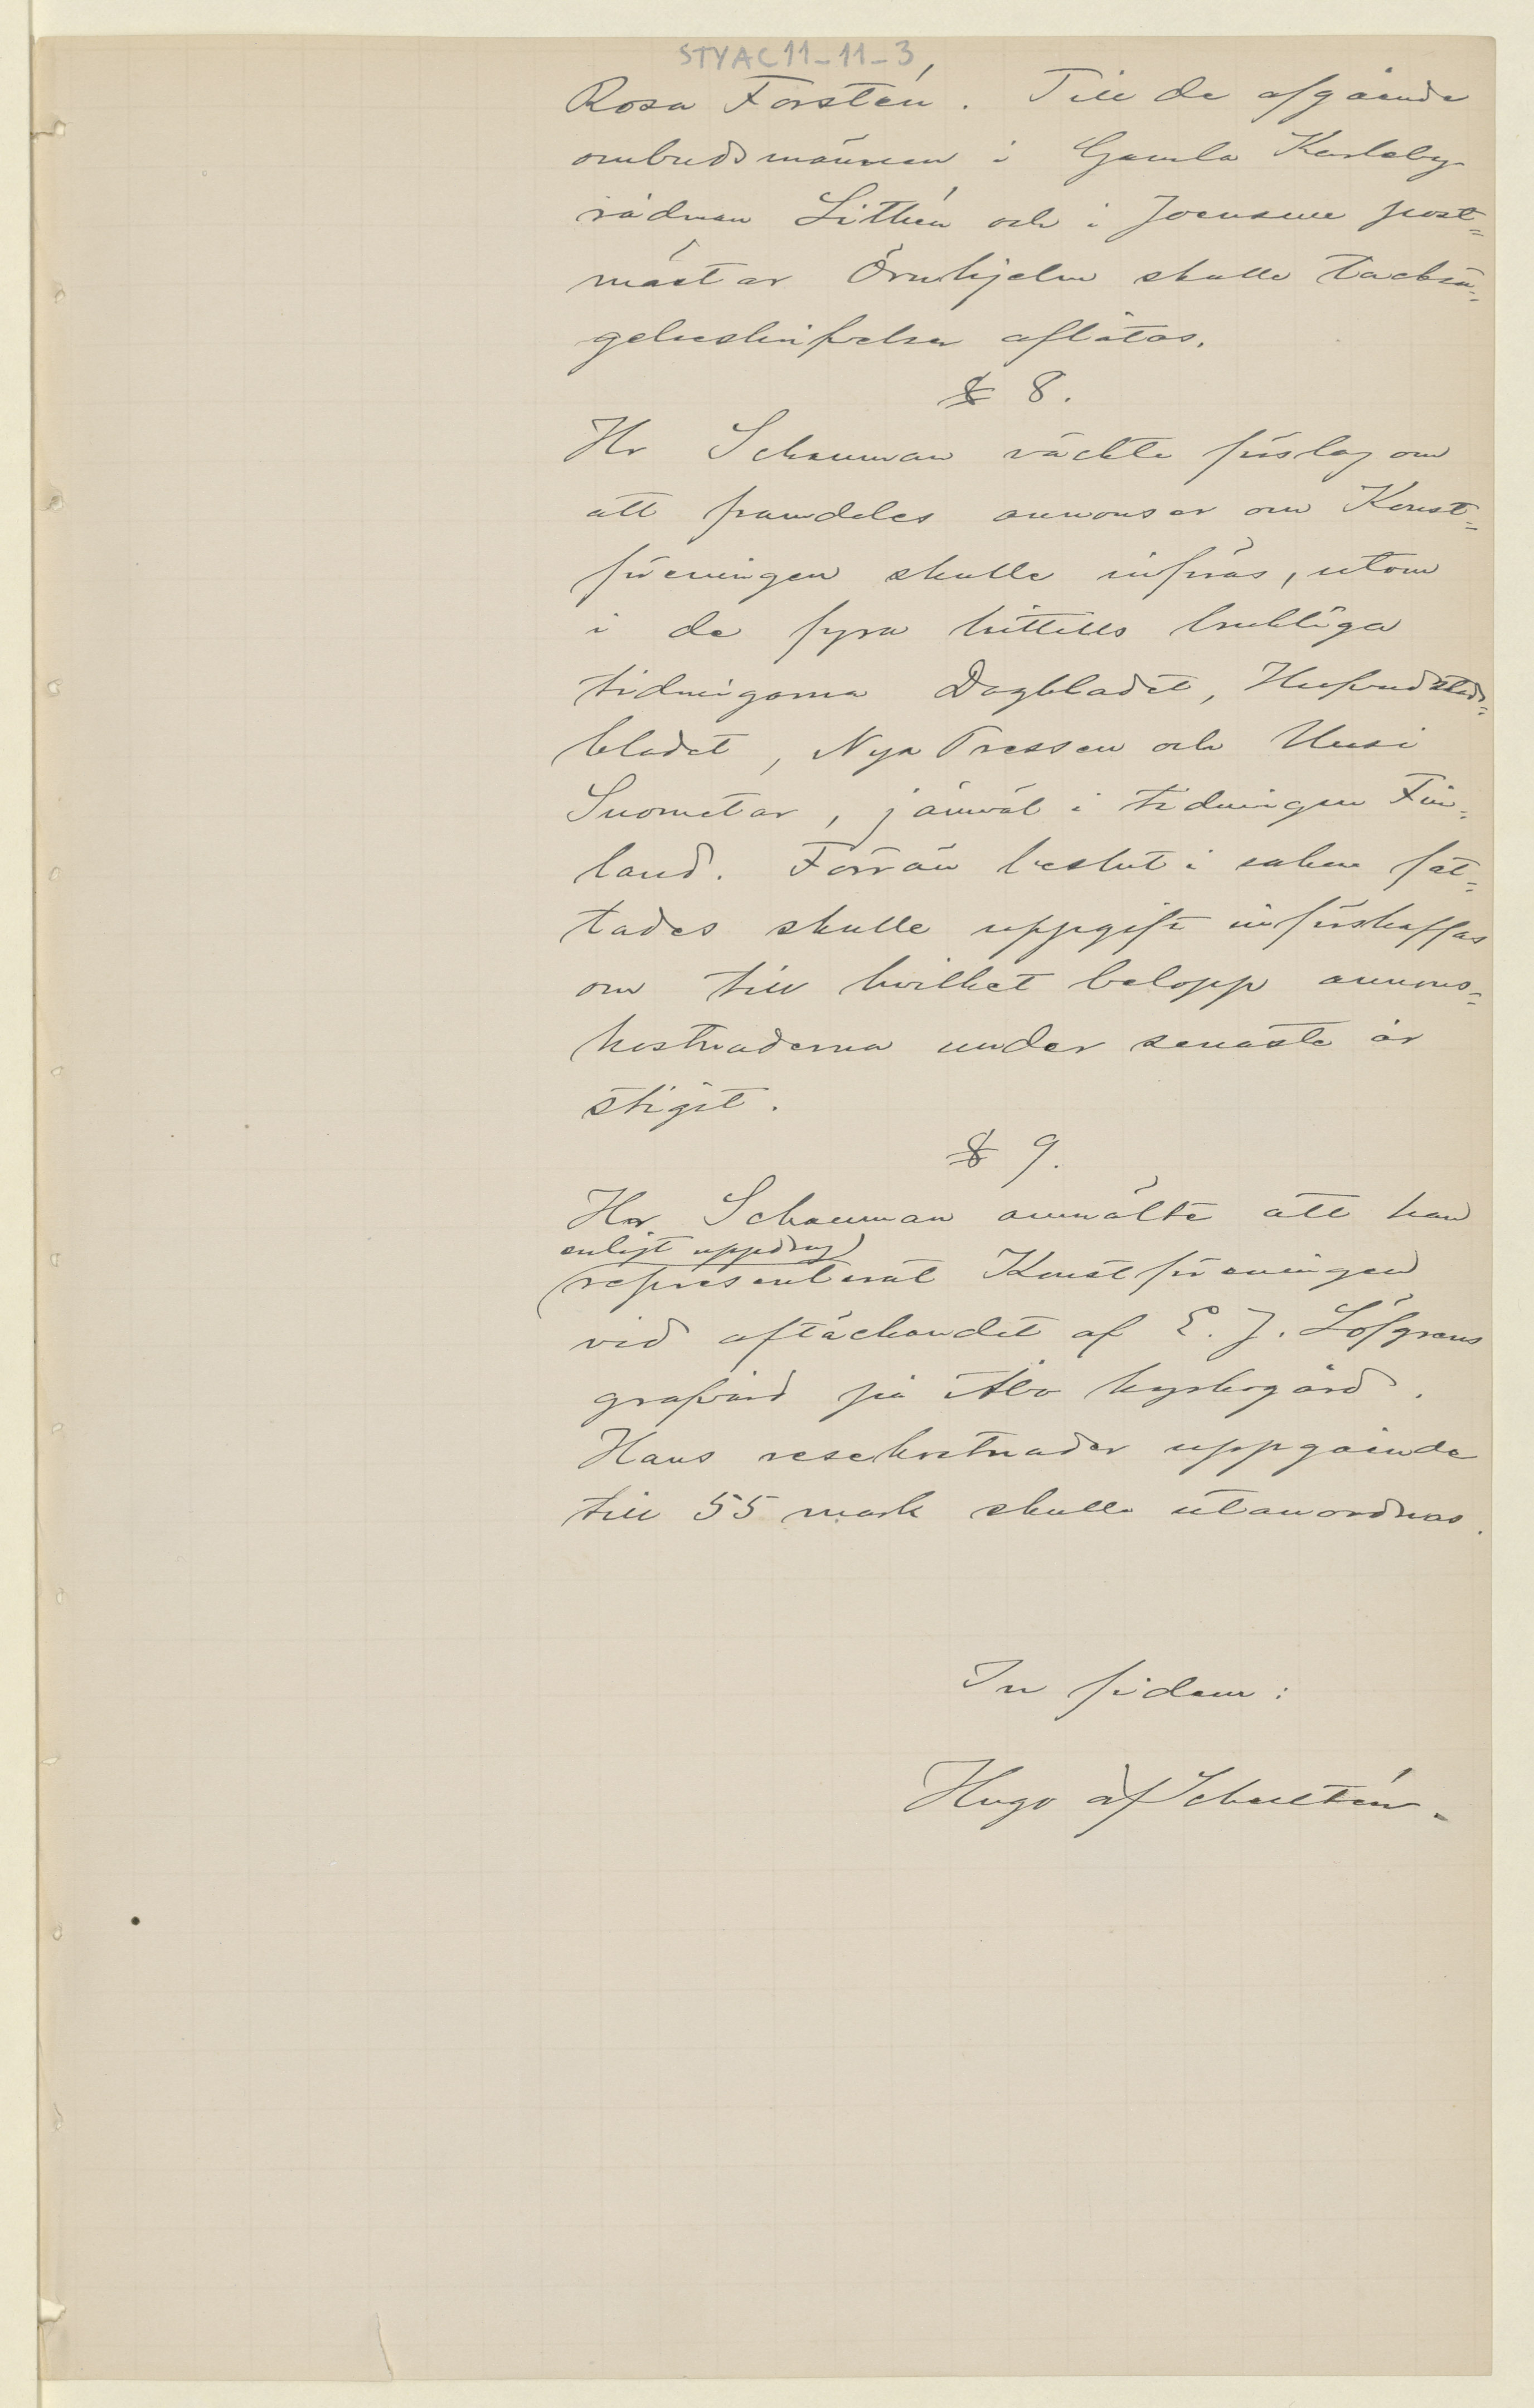 STYAC11-11-3
Rosa Forstén. Till de afgående
ombudsmännen i Gamla Karleby
rådman Lithén och i Joensuu post=
mästar Örnhjelm skulle tacksä=
gelseskrifvelser aflåtas.
§ 8.
Hr Schauman väckte förslag om
att framdeles annonser om Konst=
föreningen skulle införas, utom
i de fyra hittills brukliga
tidningarna Dagbladet, Hufvudstads=
bladet, Nya Pressen och Uusi
Suometar, jämväl i tidningen Fin=
land. Förrän beslut i saken fat=
tades skulle uppgift införskaffas
om till hvilket belopp annons=
kostnaderna under senaste år
stigit.
§ 9.
Hr Schauman anmälte att han
enligt uppdrag
representerat Konstföreningen
vid aftäckandet af E. J. Löfgrens
grafvård på Åbo kyrkogård.
Hans resekostnader uppgående
till 55 mark skulle utanordnas.
In fidem:
Hugo af Schultén.